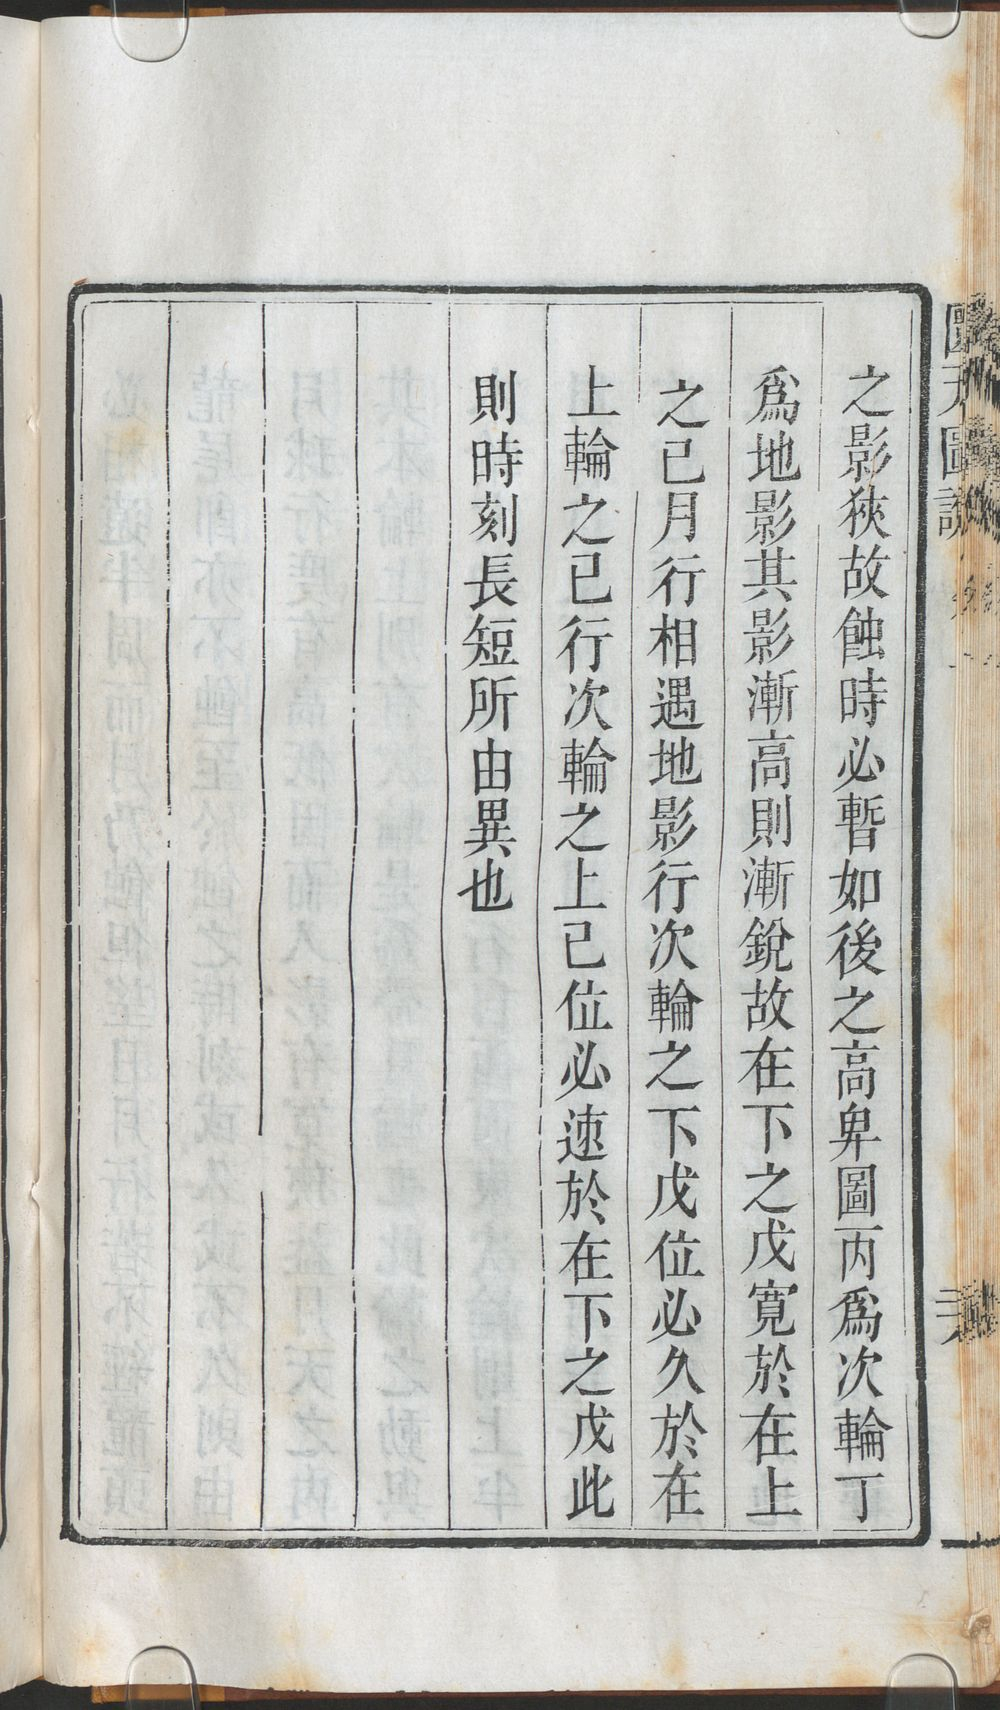 之影狹故蝕時必暫如後之高卑圖丙爲次輪丁
爲地影其影漸高則漸銳故在下之戊寬於在上
之已月行相遇地影行次輪之下戊位必久於在
上輪之已行次輪之上已位必速於在下之戊此
則時刻長短所由異也